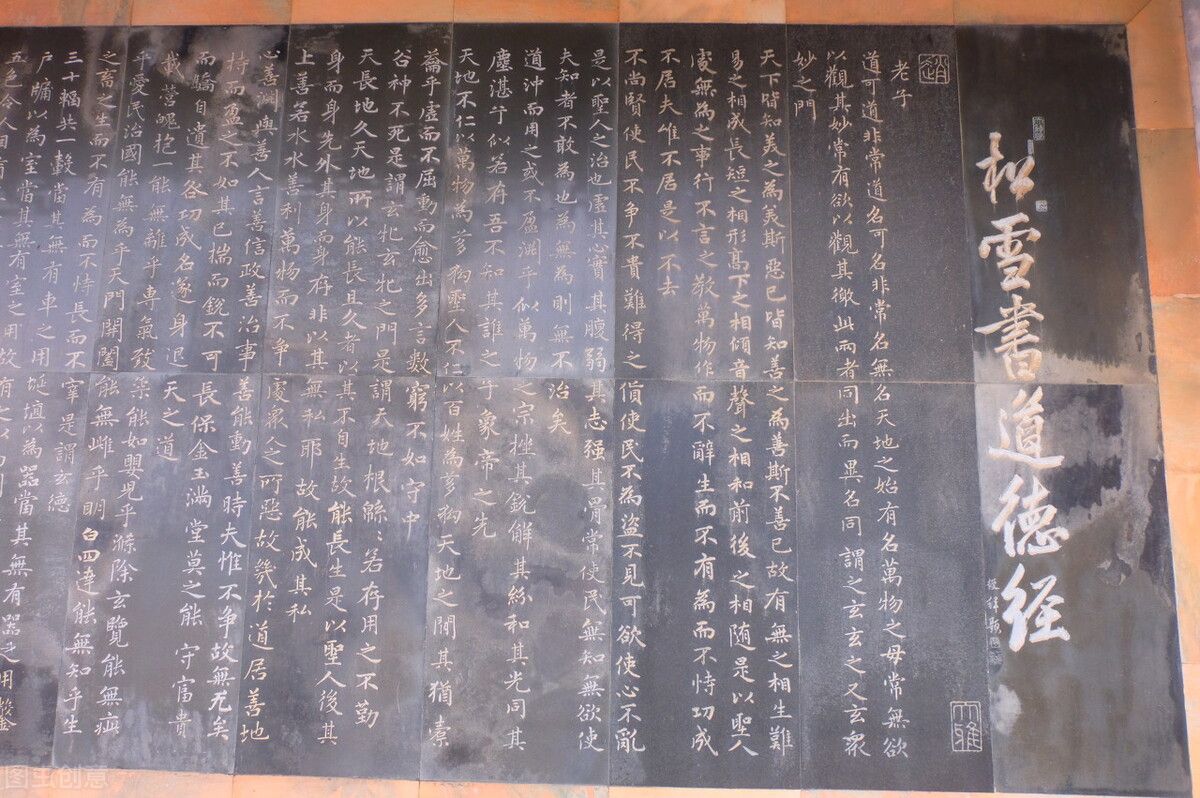 松雪書道德经
老子
道可道非常道名可名非常名無名天地之始有名萬物之母常無欲
以觀其妙常有欲以觀其徼此兩者同出而異名同謂之玄玄之又玄衆
妙之門
天下皆知美之為美斯惡已皆知善之為善斯不善已故有無之相生難
易之相成長短之相形髙下之相傾音聲之相和前後之相随是以聖人
處無為之事行不言之教萬物作而不辭生而不有為而不恃功成
不居夫惟不居是以不去
不尚賢使民不争不貴難得之貨使民不為盜不見可欲使心不亂
是以聖人之治也虚其心實其腹弱其志强其骨常使民無知無欲使
夫知者不敢為也為無為則無不治矣
道沖而用之或不盈淵乎似萬物之宗挫其銳解其紛和其光同其
塵湛乎似若存吾不知其誰之子象帝之先
天地不仁以萬物為芻狗聖人不仁以百姓為芻狗天地之間其猶橐
籥乎虛而不屈動而愈出多言數窮不如守中
谷神不死是謂玄牝玄牝之門是謂天地根緜〻若存用之不勤
天長地久天地所以能長且久者以其不自生故能長生是以聖人後其
身而身先外其身而身存非以其無私耶故能成其私
上善若水水善利萬物而不争處衆人之所惡故幾於道居善地
心善淵與善人言善信政善治事善能動善時夫惟不争故無尤矣
持而盈之不如其已揣而銳不可長保金玉滿堂莫之能守富貴
而驕自遺其咎功成名遂身退天之道
載營魄抱一能無離乎專氣致柔能如嬰兒乎滌除玄覽能無疵
乎愛民治國能無為乎天門開闔能無雌乎明白四達能無知乎生
之畜之生而不有為而不恃長而不宰是謂玄德
三十輻共一轂當其無有車之用埏埴以為器當其無有器之用鑿
户牖以為室當其無有室之用故有之以
五色令人目
图虫创意